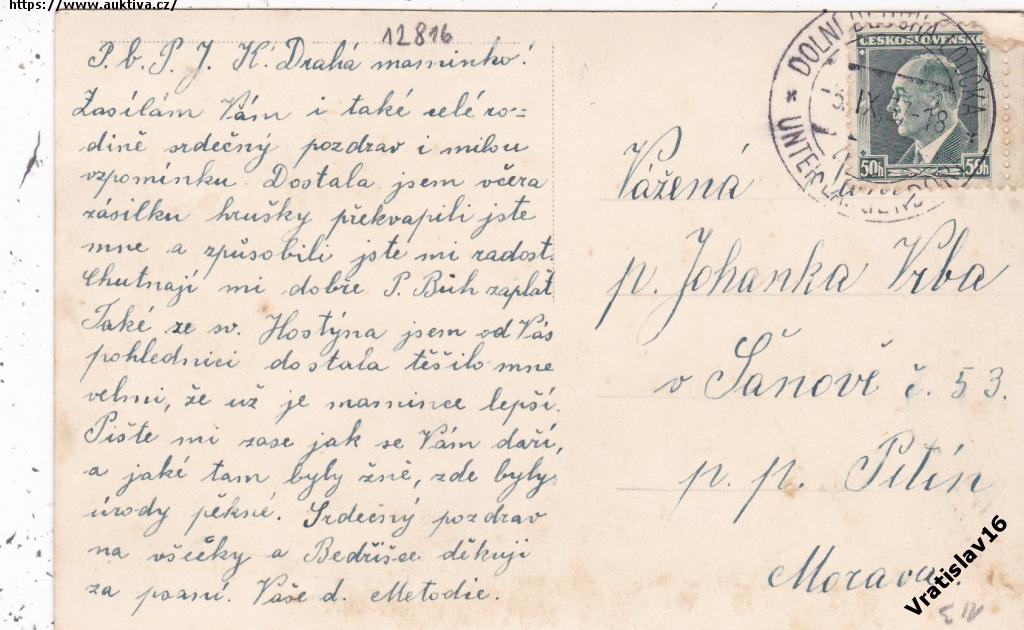 https://www.auktiva.cz/
12816
P. b. P. J. K. Drahá maminko!
Zasílám Vám i také celé ro=
dině srdečný pozdrav i milou
vzpomínku. Dostala jsem včera
zásilku hrušky překvapili jste
mne a způsobili jste mi radost.
Chutnají mi dobře P. Bůh zaplať
Také ze sv. Hostýna jsem od Vás
pohlednici dostala těšilo mne
velmi, že už je mamince lepší.
Pište mi zase jak se Vám daří,
a jaké tam byly žně, zde byly
úrody pěkné. Srdečný pozdrav
na všečky a Bedřišce děkuji
za psaní. Vaše d. Metodie.
ČESKOSLOVENSKO
50h 50h
DOLNÍ
UNTER
IX
Vážená
p. Johanka Vrba
v Šanově č. 53.
p. p. Pitín
Morava.
Vratislav16